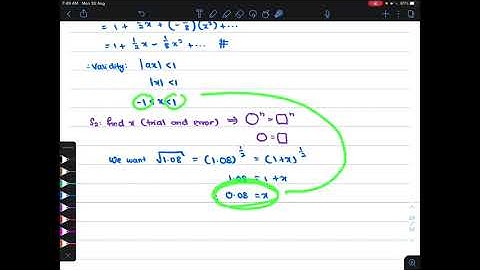 7:49 AM Mon 30 Aug
= 1 + ½x + (-⅛)(x²) + ...
= 1 + ½x - ⅛x² + ... #
Validity: |ax| < 1
|x| < 1
-1 < x < 1
S₂: find x (trial and error) ⇒ ○ⁿ = □ⁿ
○ = □
We want √1.08 = (1.08)^½ = (1+x)^½
1.08 = 1 + x
0.08 = x